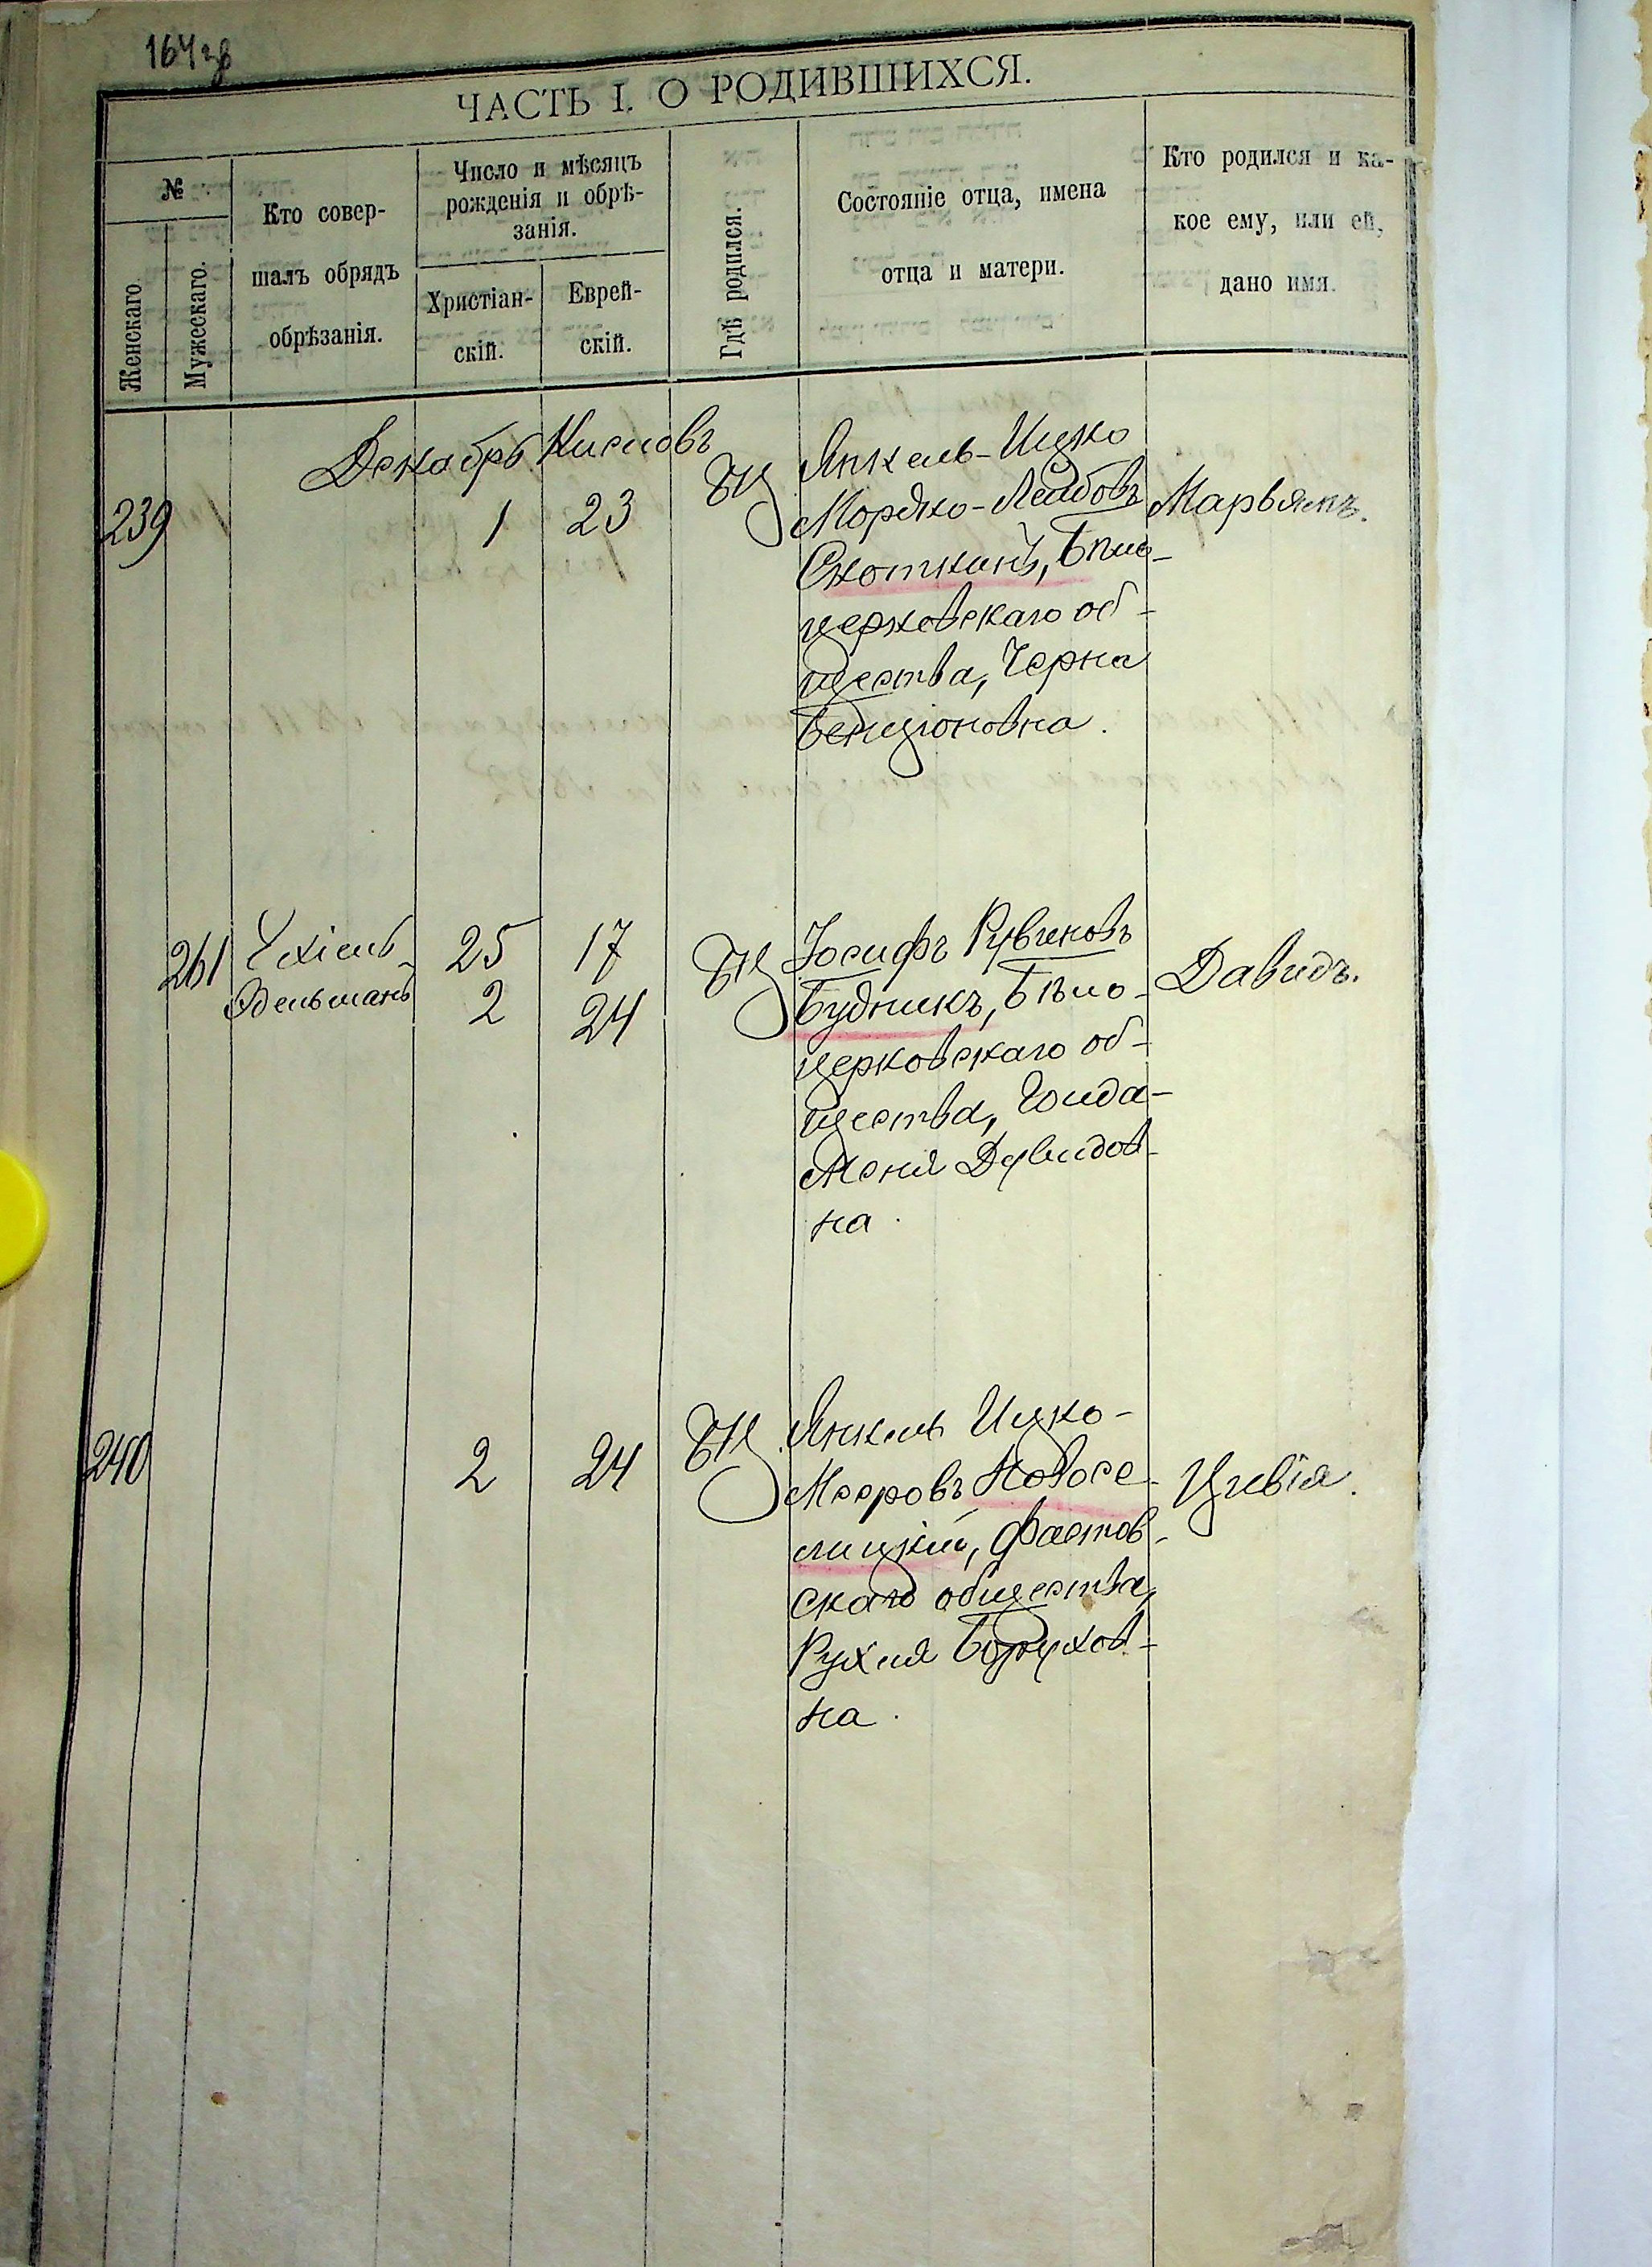 164
ЧАСТЬ I. О РОДИВШИХСЯ.
№
Женскаго.
Мужескаго.
Кто совер-
шалъ обрядъ
обрѣзанія.
Число и мѣсяцъ
рожденія и обрѣ-
занія.
Христіан-
скій.
Еврей-
скій.
Гдѣ родился.
Состояніе отца, имена
отца и матери.
Кто родился и ка-
кое ему, или ей,
дано имя.
Декабрь Кислевъ
239
1 23
БЦ
Янкель-Ицко
Мордко-Лейбовъ
Охоткинъ, Бѣло-
церковскаго об-
щества, Черна
Бенціоновна.
Марьямъ.
261
Ехіель
Эдельманъ
25 17
2 24
БЦ
Іосифъ Рувиновъ
Будникъ, Бѣло-
церковскаго об-
щества, Голда-
Меня Дувидов-
на.
Давидъ.
240
2 24
БЦ
Янкель Ицко-
Мееровъ Новосе-
лицкій, Фастов-
скаго общества,
Рухля Борухов-
на.
Цивія.